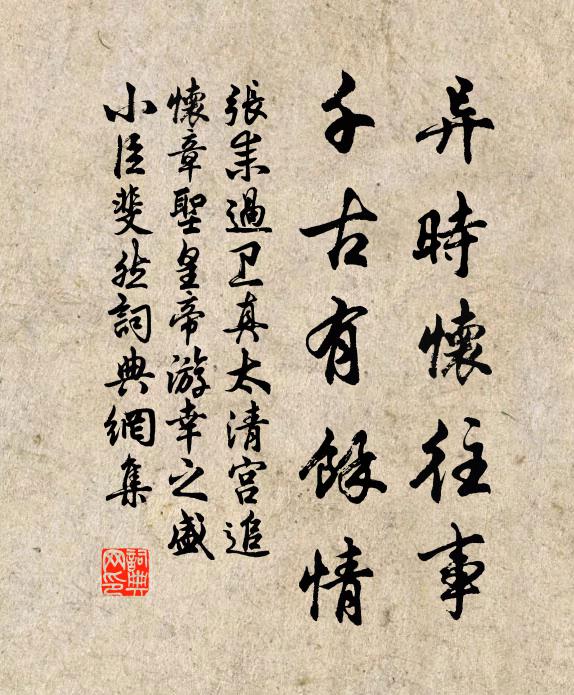 异時懷往事
千古有餘情
張耒過卫真太清宫追
懷章聖皇帝游幸之盛
小臣斐然詞典網集
詞典
网印